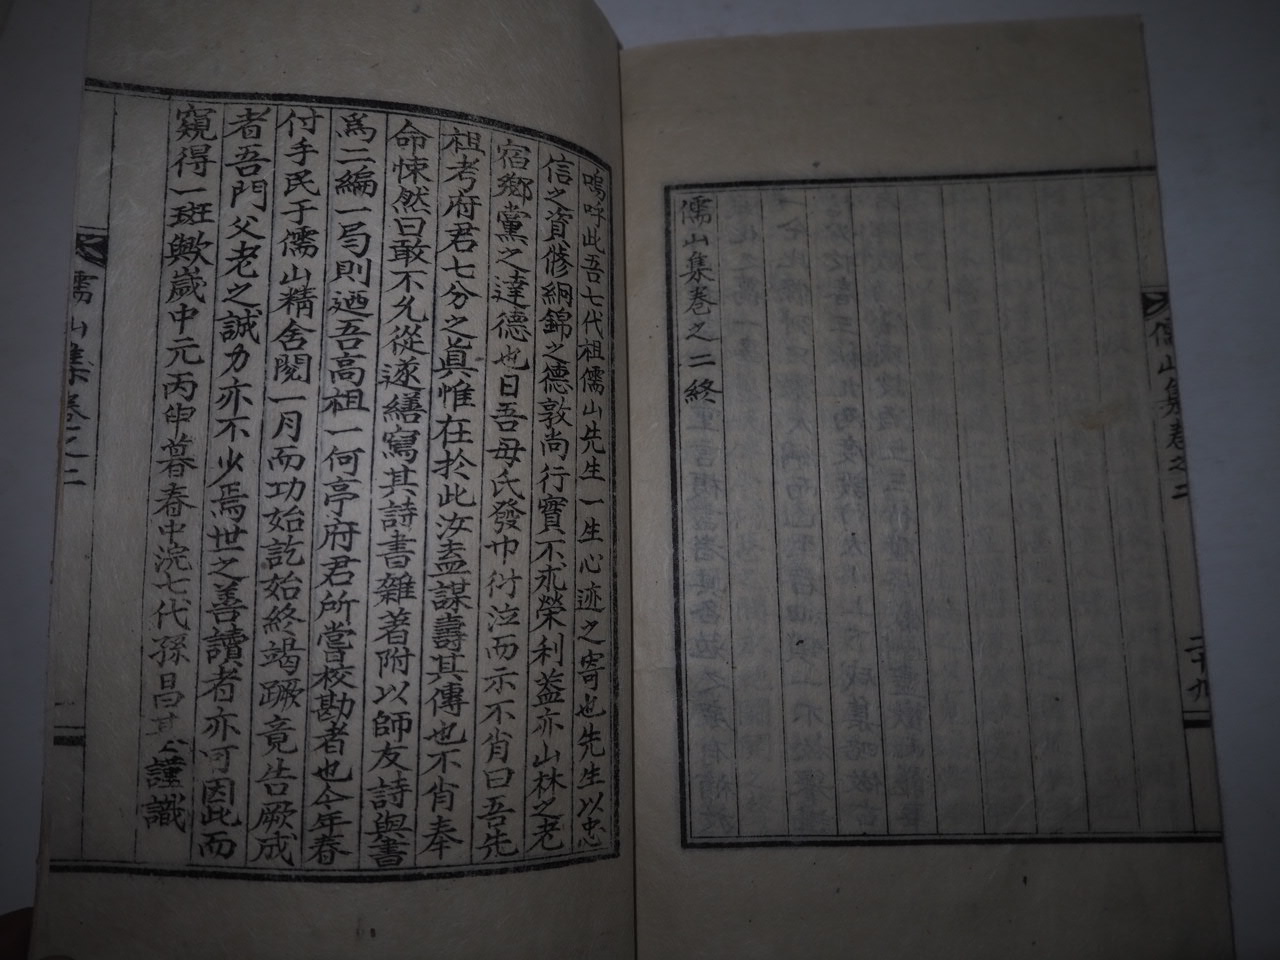 儒山集卷之二
二十九
儒山集卷之二終
嗚呼此吾七代祖儒山先生一生心迹之寄也先生以忠
信之資修絅錦之德敦尚行實不求榮利蓋亦山林之老
宿鄉黨之達德也日吾母氏發巾衍泣而示不肖曰吾先
祖考府君七分之眞惟在於此汝盍謀壽其傳也不肖奉
命悚然曰敢不允從遂繕寫其詩書雜著附以師友詩與書
爲二編一局則迺吾高祖一何亭府君所嘗校勘者也今年春
付手民于儒山精舍閱一月而功始訖始終竭蹶竟告厥成
者吾門父老之誠力亦不少焉世之善讀者亦可因此而
窺得一斑歟歲中元丙申暮春中浣七代孫昌 謹識
儒山集卷之二